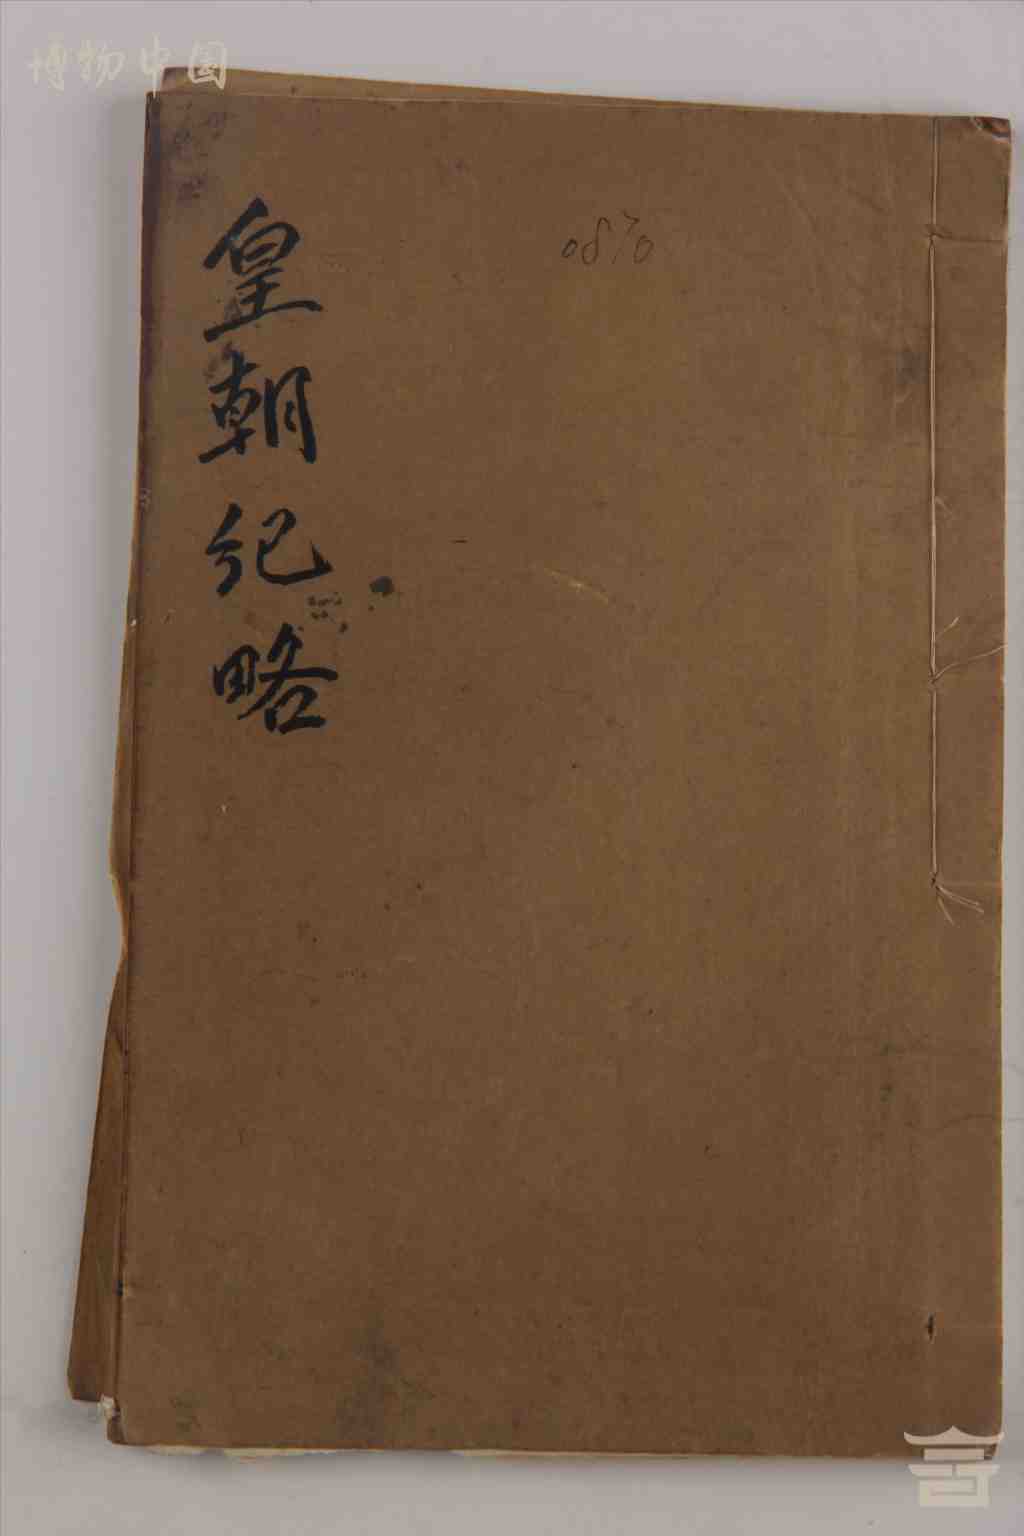 博物中国
皇朝纪略
0870